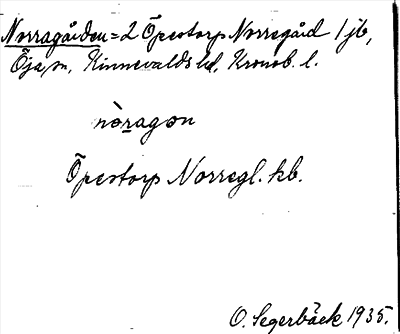 Norragården = 2 Öpestorp Norregård 1 jb,
Öja sn, Kinnevalds hd, Kronob. l.
nòragon
Öpestorp Norregl. kb.
O. Segerbäck 1935.